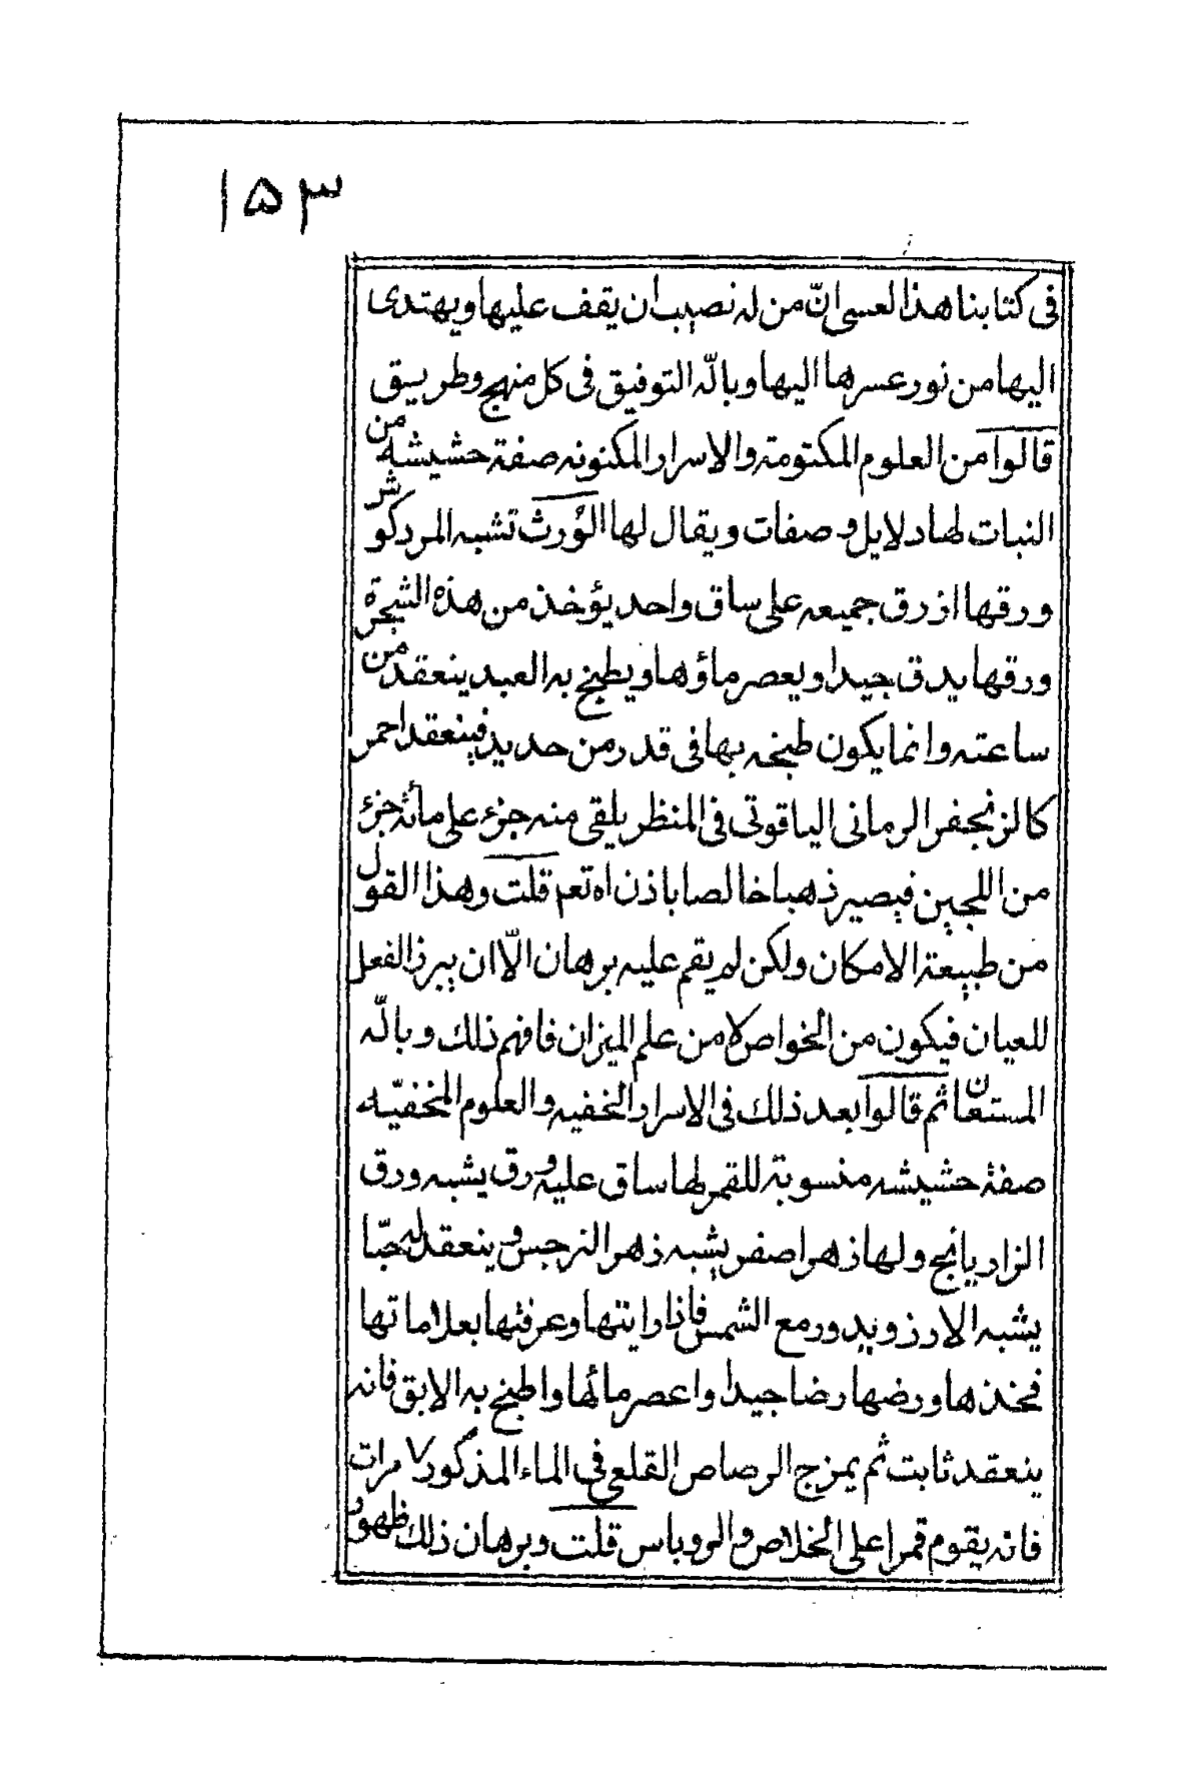 ١٥٣
فى كتابنا هذا لعسى انّ من له نصيب ان يقف عليها ويهتدى
اليها من نور عسرها اليها وبالله التوفيق فى كل منهج وطريق
قالوا من العلوم المكتومة والاسرار المكنونه صفة حشيشه من
النبات لها دلايل وصفات ويقال لها الوُرث تشبه المردكوش
ورقها ازرق جميعه على ساق واحد يؤخذ من هذه الشجرة
ورقها يدق جيدا ويعصر ماؤها ويطبخ به العبد ينعقد من
ساعته وانما يكون طبخه بها فى قدر من حديد فينعقد احمر
كالزنجفر الرمانى الياقوتى فى المنظر يلقى منه جزء على مأئة جزء
من اللجين فيصير ذهبا خالصا باذن اه تعم قلت وهذا القول
من طبيعة الامكان ولكن لم يقم عليه برهان الّا ان يبرز الفعل
للعيان فيكون من الخواص لا من علم الميزان فافهم ذلك وبالله
المستعان ثم قالوا بعد ذلك فى الاسرار الخفيه والعلوم المخفيّه
صفة حشيشه منسوبة للقمر لها ساق عليه ورق يشبه ورق
الزاريانج ولها زهر اصفر يشبه زهر النرجس وينعقد له حبّا
يشبه الارز ويدور مع الشمس فاذا رايتها وعرفتها بعلاماتها
فخذها ورضها رضا جيدا واعصر مائها واطبخ به الابق فانه
ينعقد ثابت ثم يمزج الرصاص القلعى فى الماء المذكور ٧ مرات
فانه يقوم قمرا على الخلاص والروباس قلت وبرهان ذلك ظهور